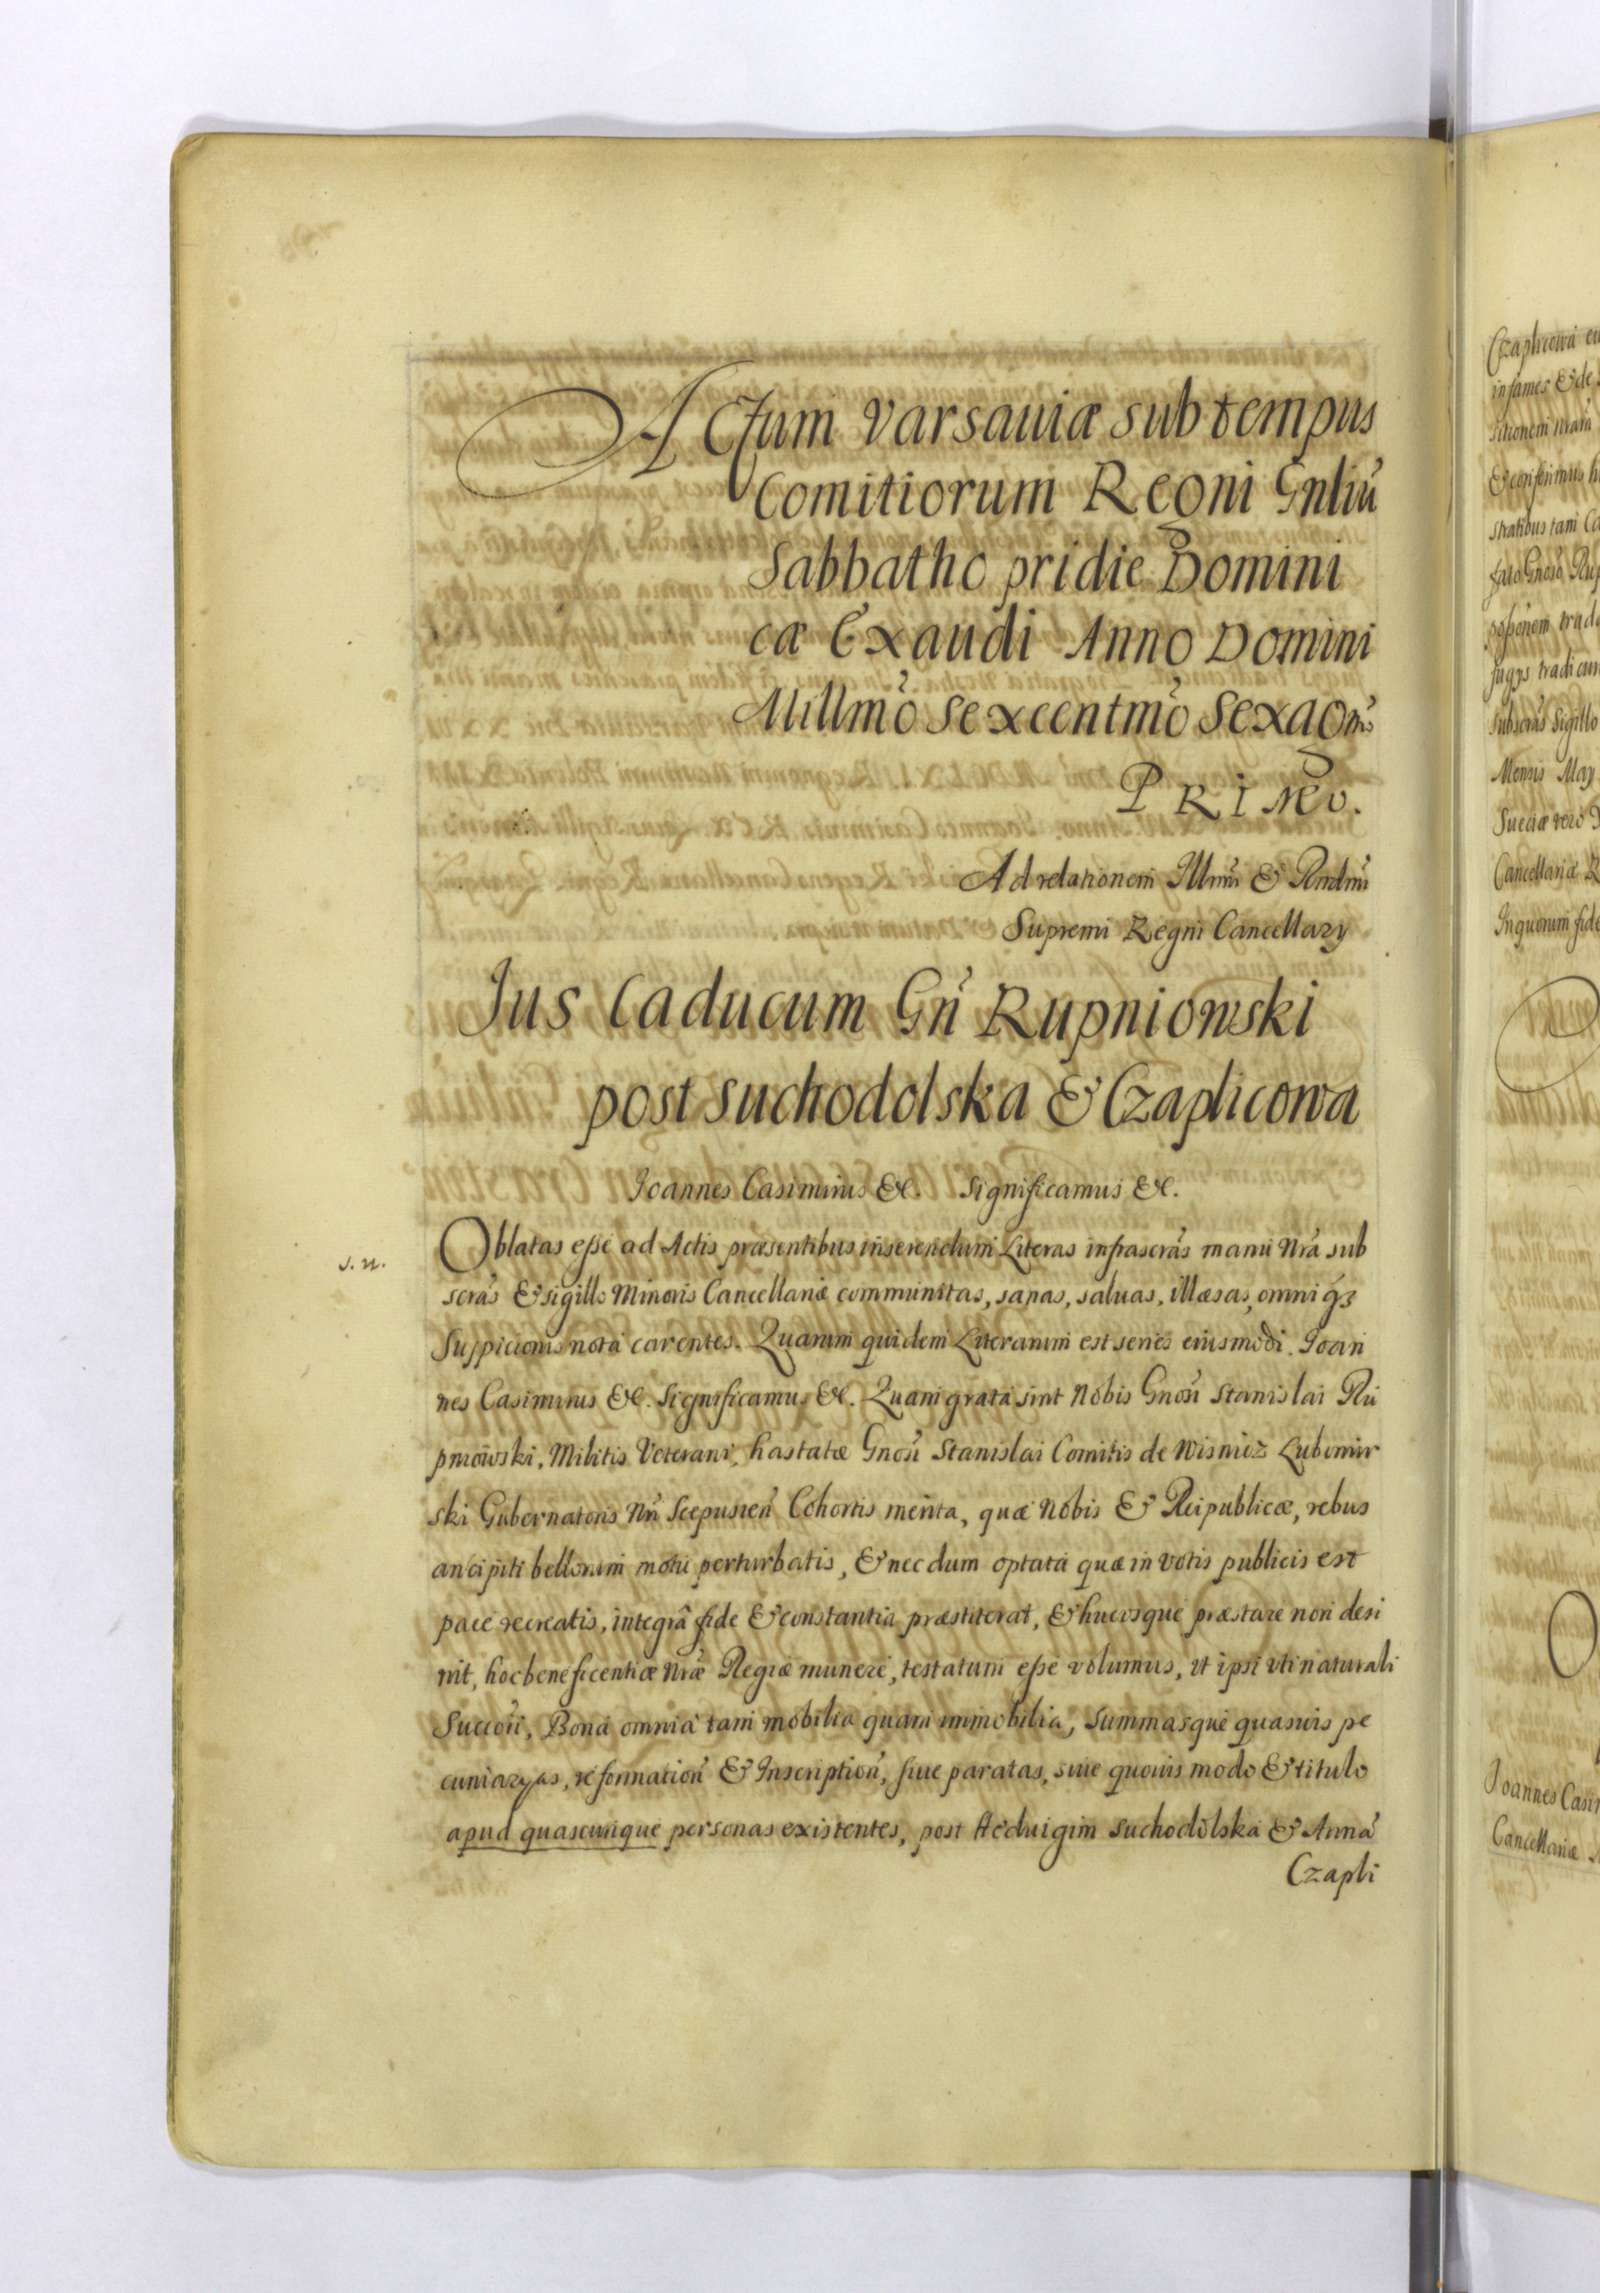 Actum Varsaviæ sub tempus
Comitiorum Regni Gnliũ
Sabbatho pridie Domini
cæ Exaudi Anno Domini
Millmo Sexcentmo Sexagmo
PRIMO.
Ad relationem Illmi & Rndmi
Supremi Regni Cancellary
Jus Caducum Gñ Rupniowski
post Suchodolska & Czaplicowa
Joannes Casimirus &c. Significamus &c.
s. n.
Oblatas esse ad Actis præsentibus inserendum Literas infrascras manu Nra sub
scras & sigillo Minoris Cancellariæ communitas, sanas, saluas, illæsas, omniqȝ
Suspicionis nota carentes. Quarum quidem Literarum est series eiusmodi. Joan
nes Casimirus &c. Significamus &c. Quam grata sint Nobis Gnosi Stanislai Ru
pniowski, Militis Veterani, hastatæ Gnosi Stanislai Comitis de Wisnicz Lubomir
ski Gubernatoris Nri Scepusien Cohortis merita, quæ Nobis & Reipublicæ, rebus
ancipiti bellorum motu perturbatis, & nec dum optata quæ in votis publicis est
pace recreatis, integrâ fide & constantia præstiterat, & hucusque præstare non desi
nit, hoc beneficentiæ Nræ Regiæ munere, testatum esse volumus, vt ipsi vti naturali
Succori, Bona omnia tam mobilia quam immobilia, Summasque quasuis pe
cuniaryas, reformation & Inscription, siue paratas, siue quouis modo & titulo
apud quascunque personas existentes, post Heduigim Suchodolska & Anna
Czapli
Czaplicowa
infames & de
sitionem nram
stratibus tam
Mensis May
Sueciæ vero
Cancellariæ
In quorum fide
Joannes Casi
Cancellariæ